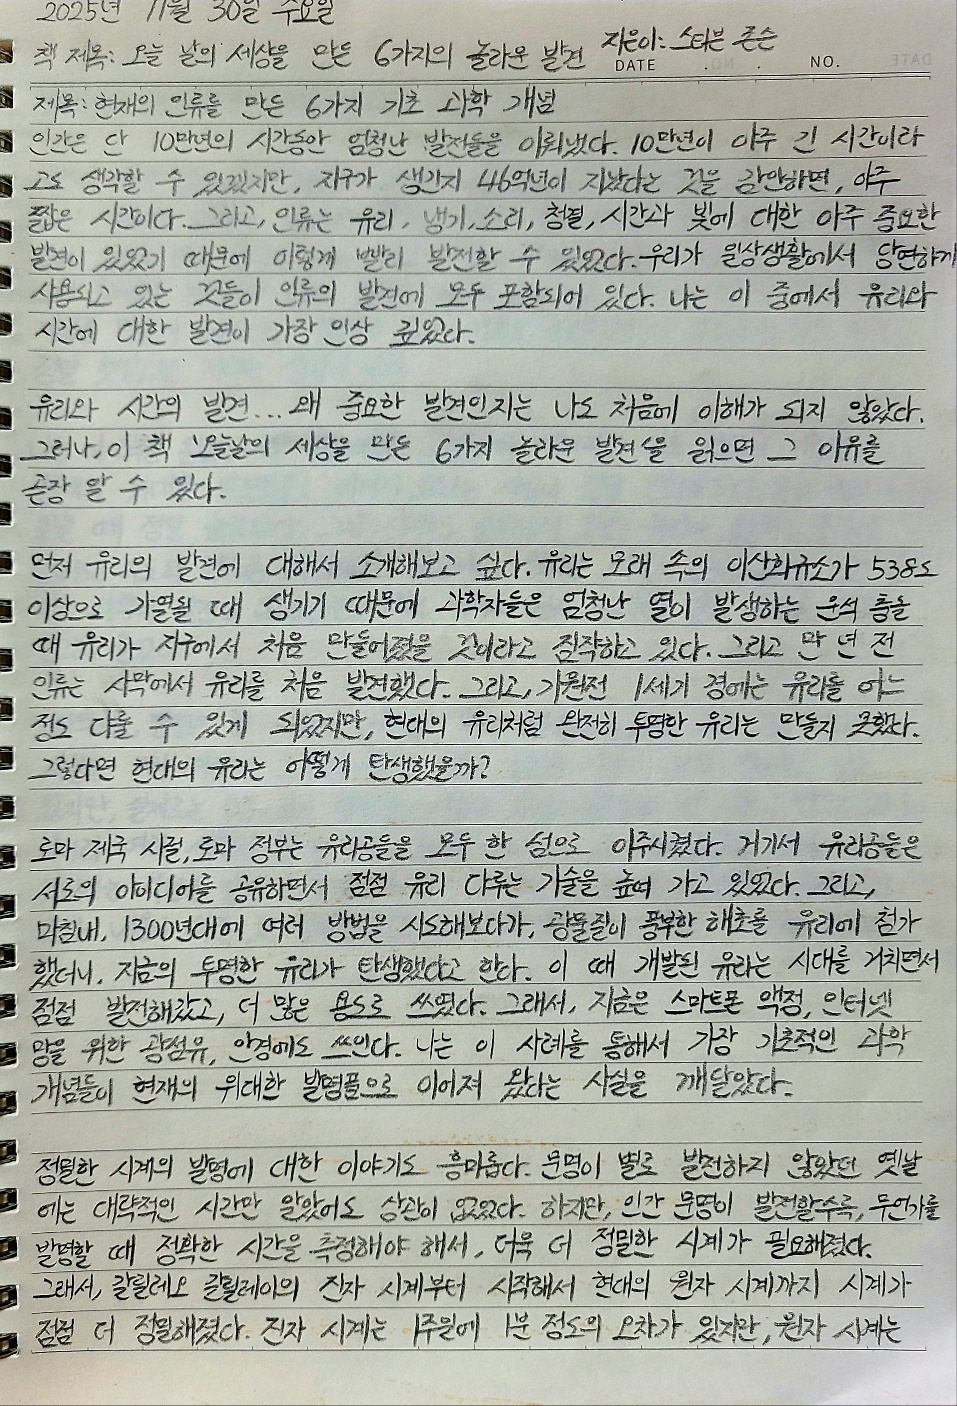 2025년 11월 30일 수요일
책 제목: 오늘 날의 세상을 만든 6가지의 놀라운 발견 지은이: 스티븐 존슨
DATE . . NO.
제목: 현재의 인류를 만든 6가지 기초 과학 개념
인간은 단 10만년의 시간동안 엄청난 발전들을 이뤄냈다. 10만년이 아주 긴 시간이라
고도 생각할 수 있겠지만, 지구가 생긴지 46억년이 지났다는 것을 감안하면, 아주
짧은 시간이다. 그리고, 인류는 유리, 냉기, 소리, 청결, 시간과 빛에 대한 아주 중요한
발견이 있었기 때문에 이렇게 빨리 발전할 수 있었다. 우리가 일상생활에서 당연하게
사용되고 있는 것들이 인류의 발견에 모두 포함되어 있다. 나는 이 중에서 유리와
시간에 대한 발견이 가장 인상 깊었다.
유리와 시간의 발견... 왜 중요한 발견인지는 나도 처음에 이해가 되지 않았다.
그러나, 이 책 '오늘날의 세상을 만든 6가지 놀라운 발견'을 읽으면 그 이유를
곧장 알 수 있다.
먼저 유리의 발견에 대해서 소개해보고 싶다. 유리는 모래 속의 이산화규소가 538도
이상으로 가열될 때 생기기 때문에 과학자들은 엄청난 열이 발생하는 운석 충돌
때 유리가 지구에서 처음 만들어졌을 것이라고 짐작하고 있다. 그리고 만 년 전
인류는 사막에서 유리를 처음 발견했다. 그리고, 기원전 1세기 경에는 유리를 어느
정도 다룰 수 있게 되었지만, 현대의 유리처럼 완전히 투명한 유리는 만들지 못했다.
그렇다면 현대의 유리는 어떻게 탄생했을까?
로마 제국 시절, 로마 정부는 유리공들을 모두 한 섬으로 이주시켰다. 거기서 유리공들은
서로의 아이디어를 공유하면서 점점 유리 다루는 기술을 높여 가고 있었다. 그리고,
마침내, 1300년대에 여러 방법을 시도해보다가, 광물질이 풍부한 해초를 유리에 첨가
했더니, 지금의 투명한 유리가 탄생했다고 한다. 이 때 개발된 유리는 시대를 거치면서
점점 발전해갔고, 더 많은 용도로 쓰였다. 그래서, 지금은 스마트폰 액정, 인터넷
망을 위한 광섬유, 안경에도 쓰인다. 나는 이 사례를 통해서 가장 기초적인 과학
개념들이 현재의 위대한 발명품으로 이어져 왔다는 사실을 깨달았다.
정밀한 시계의 발명에 대한 이야기도 흥미롭다. 문명이 별로 발전하지 않았던 옛날
에는 대략적인 시간만 알았어도 상관이 없었다. 하지만, 인간 문명이 발전할수록, 무언가를
발명할 때 정확한 시간을 측정해야 해서, 더욱 더 정밀한 시계가 필요해졌다.
그래서, 갈릴레오 갈릴레이의 진자 시계부터 시작해서 현대의 원자 시계까지 시계가
점점 더 정밀해졌다. 진자 시계는 1주일에 1분 정도의 오차가 있지만, 원자 시계는